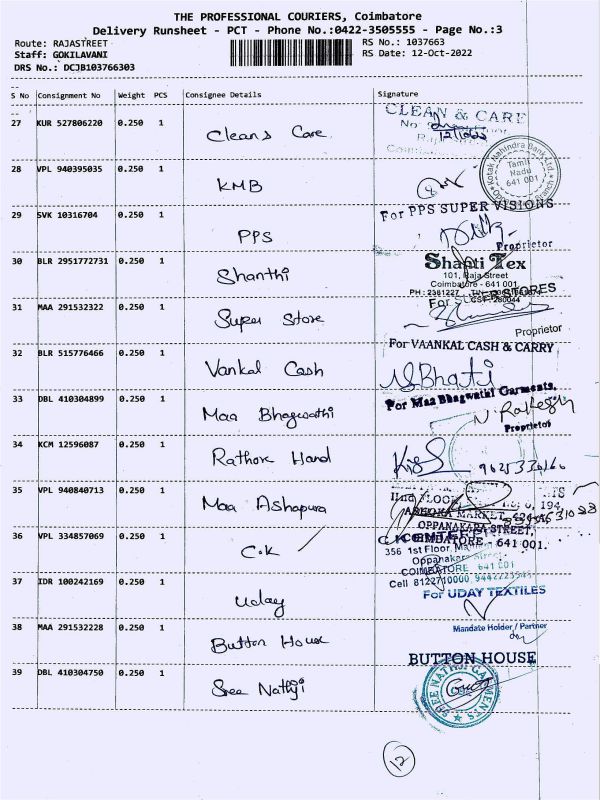 THE PROFESSIONAL COURIERS, Coimbatore
Delivery Runsheet - PCT - Phone No.:0422-3505555 - Page No.:3
Route: RAJASTREET
RS No.: 1037663
Staff: GOKILAVANI
RS Date: 12-Oct-2022
DRS No.: DCJB103766303
S No Consignment No Weight PCS Consignee Details Signature
27 KUR 527806220 0.250 1 Cleans Care
CLEAN & CARE
No
28 VPL 940395035 0.250 1 KMB
Kotak Mahindra Bank Ltd.
Tamil
Nadu
641 001
29 SVK 10316704 0.250 1 PPS
For PPS SUPER VISIONS
Proprietor
30 BLR 2951772731 0.250 1 Shanthi
Shanti Tex
101, Raja Street
Coimbatore - 641 001
PH : 2381227
31 MAA 291532322 0.250 1 Super Store
For
STORES
Proprietor
32 BLR 515776466 0.250 1 Vankal Cash
For VAANKAL CASH & CARRY
33 DBL 410304899 0.250 1 Maa Bhagwathi
For Maa Bhagwathi Garments,
Proprietor
34 KCM 12596087 0.250 1 Rathore Hand
35 VPL 940840713 0.250 1 Maa Ashapura
IInd FLOOR
ASHOKA MARKET,
OPPANAKARA STREET,
COIMBATORE - 641 001.
36 VPL 334857069 0.250 1 C.K
356 1st Floor,
Oppanakara Street
COIMBATORE 641 001
Cell 8122710000,
37 IDR 100242169 0.250 1 Uday
For UDAY TEXTILES
38 MAA 291532228 0.250 1 Button House
Mandate Holder / Partner
BUTTON HOUSE
39 DBL 410304750 0.250 1 Sree Nathji
SREE NATHJI GARMENTS
12